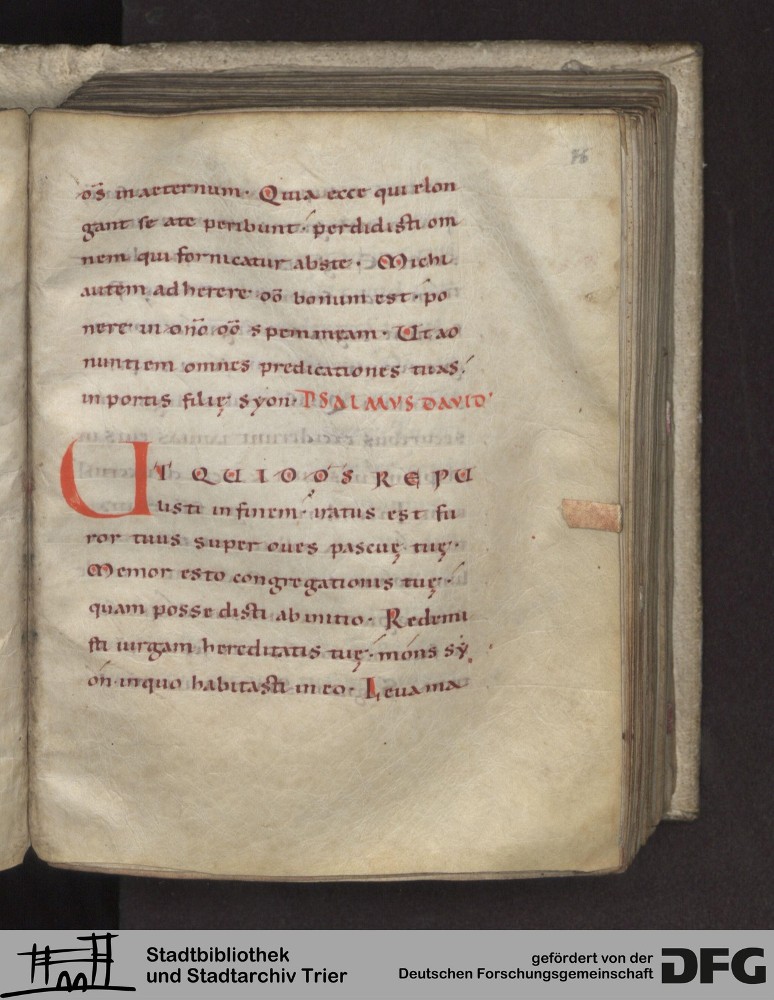 76
ōs in aeternum · Quia ecce qui elon
gant se a te peribunt · perdidisti om
nem qui fornicatur abs te · Michi
autem adherere dō bonum est · po
nere in dn̄o dō spem meam · Ut ad
nuntiem omnes predicationes tuas ·
in portis filię syon · PSALMUS DAVID
UT QUID D̄S REPU
listi in finem · iratus est fu
ror tuus super oves pascuę tuę ·
Memor esto congregationis tuę ·
quam possedisti ab initio · Redemi
sti uirgam hereditatis tuę · mons sy
on in quo habitasti in eo · Leua ma
Stadtbibliothek
und Stadtarchiv Trier
gefördert von der
Deutschen Forschungsgemeinschaft
DFG